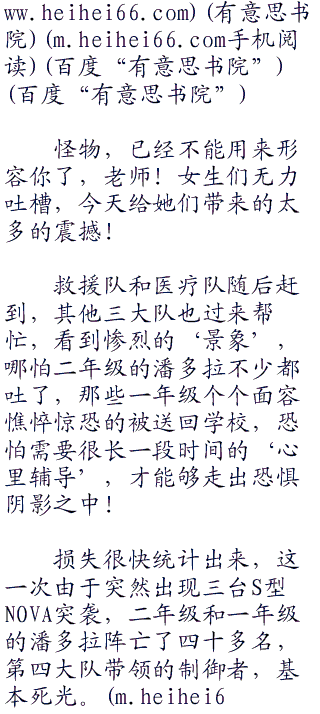 ww.heihei66.com)(有意思书
院)(m.heihei66.com手机阅
读)(百度“有意思书院”)
(百度“有意思书院”)
怪物，已经不能用来形
容你了，老师！女生们无力
吐槽，今天给她们带来的太
多的震撼！
救援队和医疗队随后赶
到，其他三大队也过来帮
忙，看到惨烈的‘景象’，
哪怕二年级的潘多拉不少都
吐了，那些一年级个个面容
憔悴惊恐的被送回学校，恐
怕需要很长一段时间的‘心
里辅导’，才能够走出恐惧
阴影之中！
损失很快统计出来，这
一次由于突然出现三台S型
NOVA突袭，二年级和一年级
的潘多拉阵亡了四十多名，
第四大队带领的制御者，基
本死光。(m.heihei6